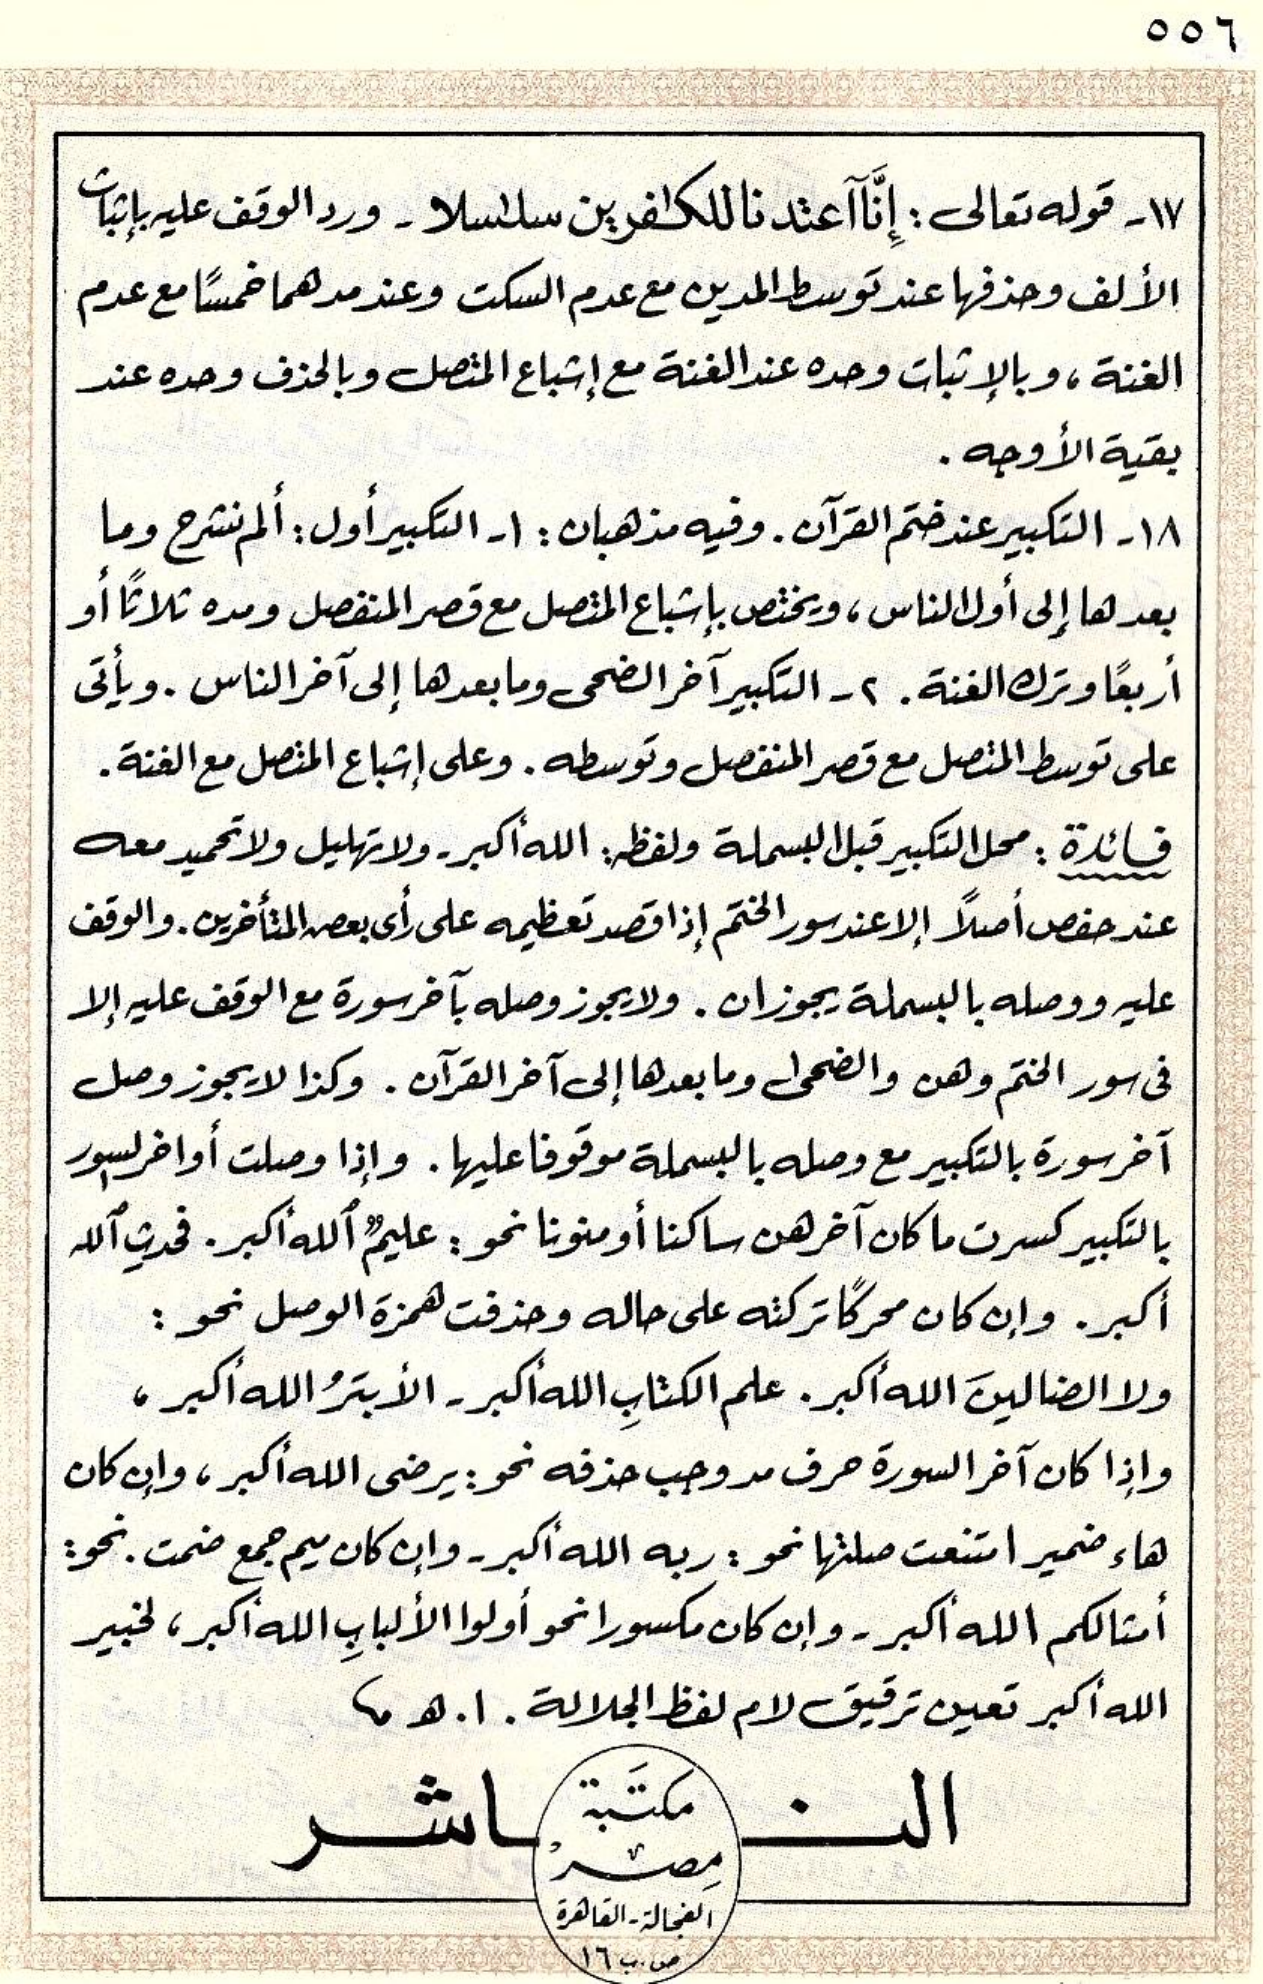 ٥٥٦
١٧ـ قوله تعالى : إِنَّآ أعتدنا للكٰفرين سلٰسلا ـ ورد الوقف عليه بإثبات
الألف وحذفها عند توسط المدين مع عدم السكت وعند مدهما خمسًا مع عدم
الغنة ، وبالإثبات وحده عند الغنة مع إشباع المتصل وبالحذف وحده عند
بقية الأوجه .
١٨ـ التكبير عند ختم القرآن . وفيه مذهبان : ١ـ التكبير أول : ألم نشرح وما
بعدها إلى أول الناس ، ويختص بإشباع المتصل مع قصر المنفصل ومده ثلاثًا أو
أربعًا وترك الغنة . ٢ـ التكبير آخر الضحى وما بعدها إلى آخر الناس . ويأتى
على توسط المتصل مع قصر المنفصل وتوسطه . وعلى إشباع المتصل مع الغنة .
فائدة : محل التكبير قبل البسملة ولفظه : الله أكبر ـ ولا تهليل ولا تحميد معه
عند حفص أصلاً إلا عند سور الختم إذا قصد تعظيمه على رأى بعض المتأخرين . والوقف
عليه ووصله بالبسملة يجوزان . ولا يجوز وصله بآخر سورة مع الوقف عليه إلا
فى سور الختم وهن والضحى وما بعدها إلى آخر القرآن . وكذا لا يجوز وصل
آخر سورة بالتكبير مع وصله بالبسملة موقوفا عليها . وإذا وصلت أواخر السور
بالتكبير كسرت ما كان آخرهن ساكنا أو منونا نحو : عليمٌ ٱلله أكبر . فحدثِ ٱلله
أكبر . وإن كان محركًا تركته على حاله وحذفت همزة الوصل نحو :
ولا الضالينَ الله أكبر . علم الكتابِ الله أكبر ـ الأبترُ الله أكبر ،
وإذا كان آخر السورة حرف مد وجب حذفه نحو : يرضى الله أكبر ، وإن كان
هاء ضمير امتنعت صلتها نحو : ربه الله أكبر ـ وإن كان ميم جمع ضمت . نحو :
أمثالكم الله أكبر ـ وإن كان مكسورا نحو أولوا الألبابِ الله أكبر ، لخبير
الله أكبر تعين ترقيق لام لفظ الجلالة . ا . هـ
الناشر
مكتبة
مصر
الفجالة ـ القاهرة
ص . ب ١٦